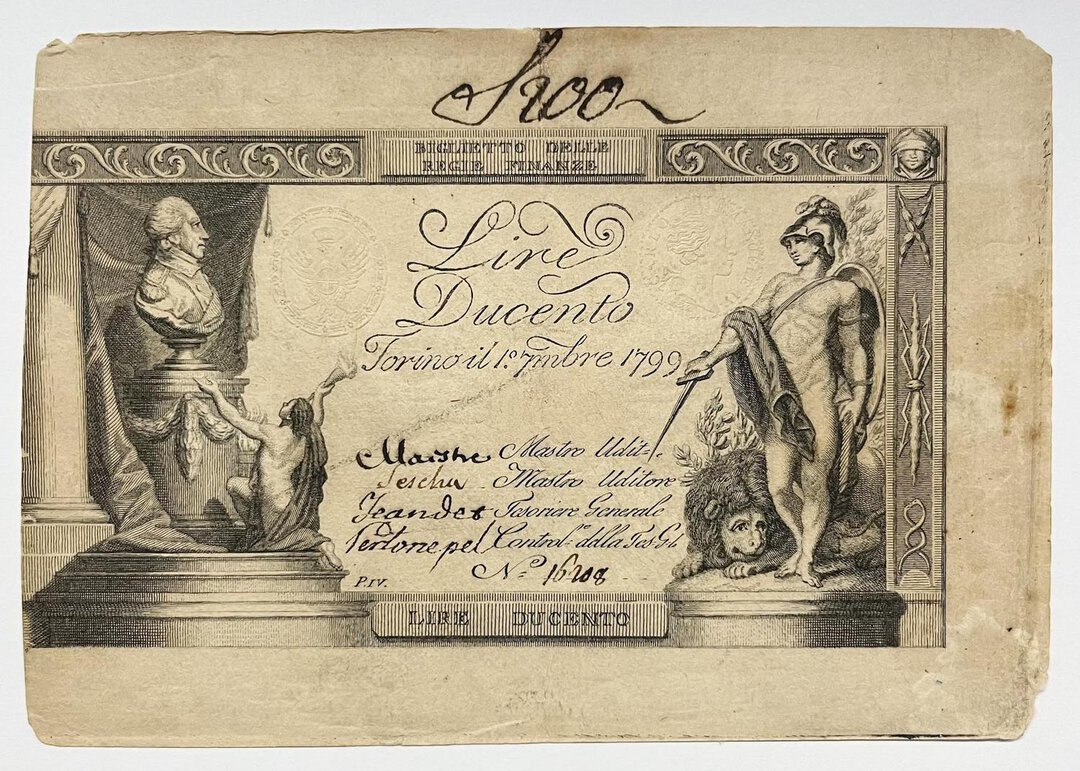 200
BIGLIETTO DELLE
REGIE FINANZE
Lire
Ducento
Torino il 1.º 7mbre 1799
Mastro Udit.e
Mastro Uditore
Tesoriere Generale
Control.re della Tes. G.le
N.º 16208
P.IV.
LIRE DUCENTO